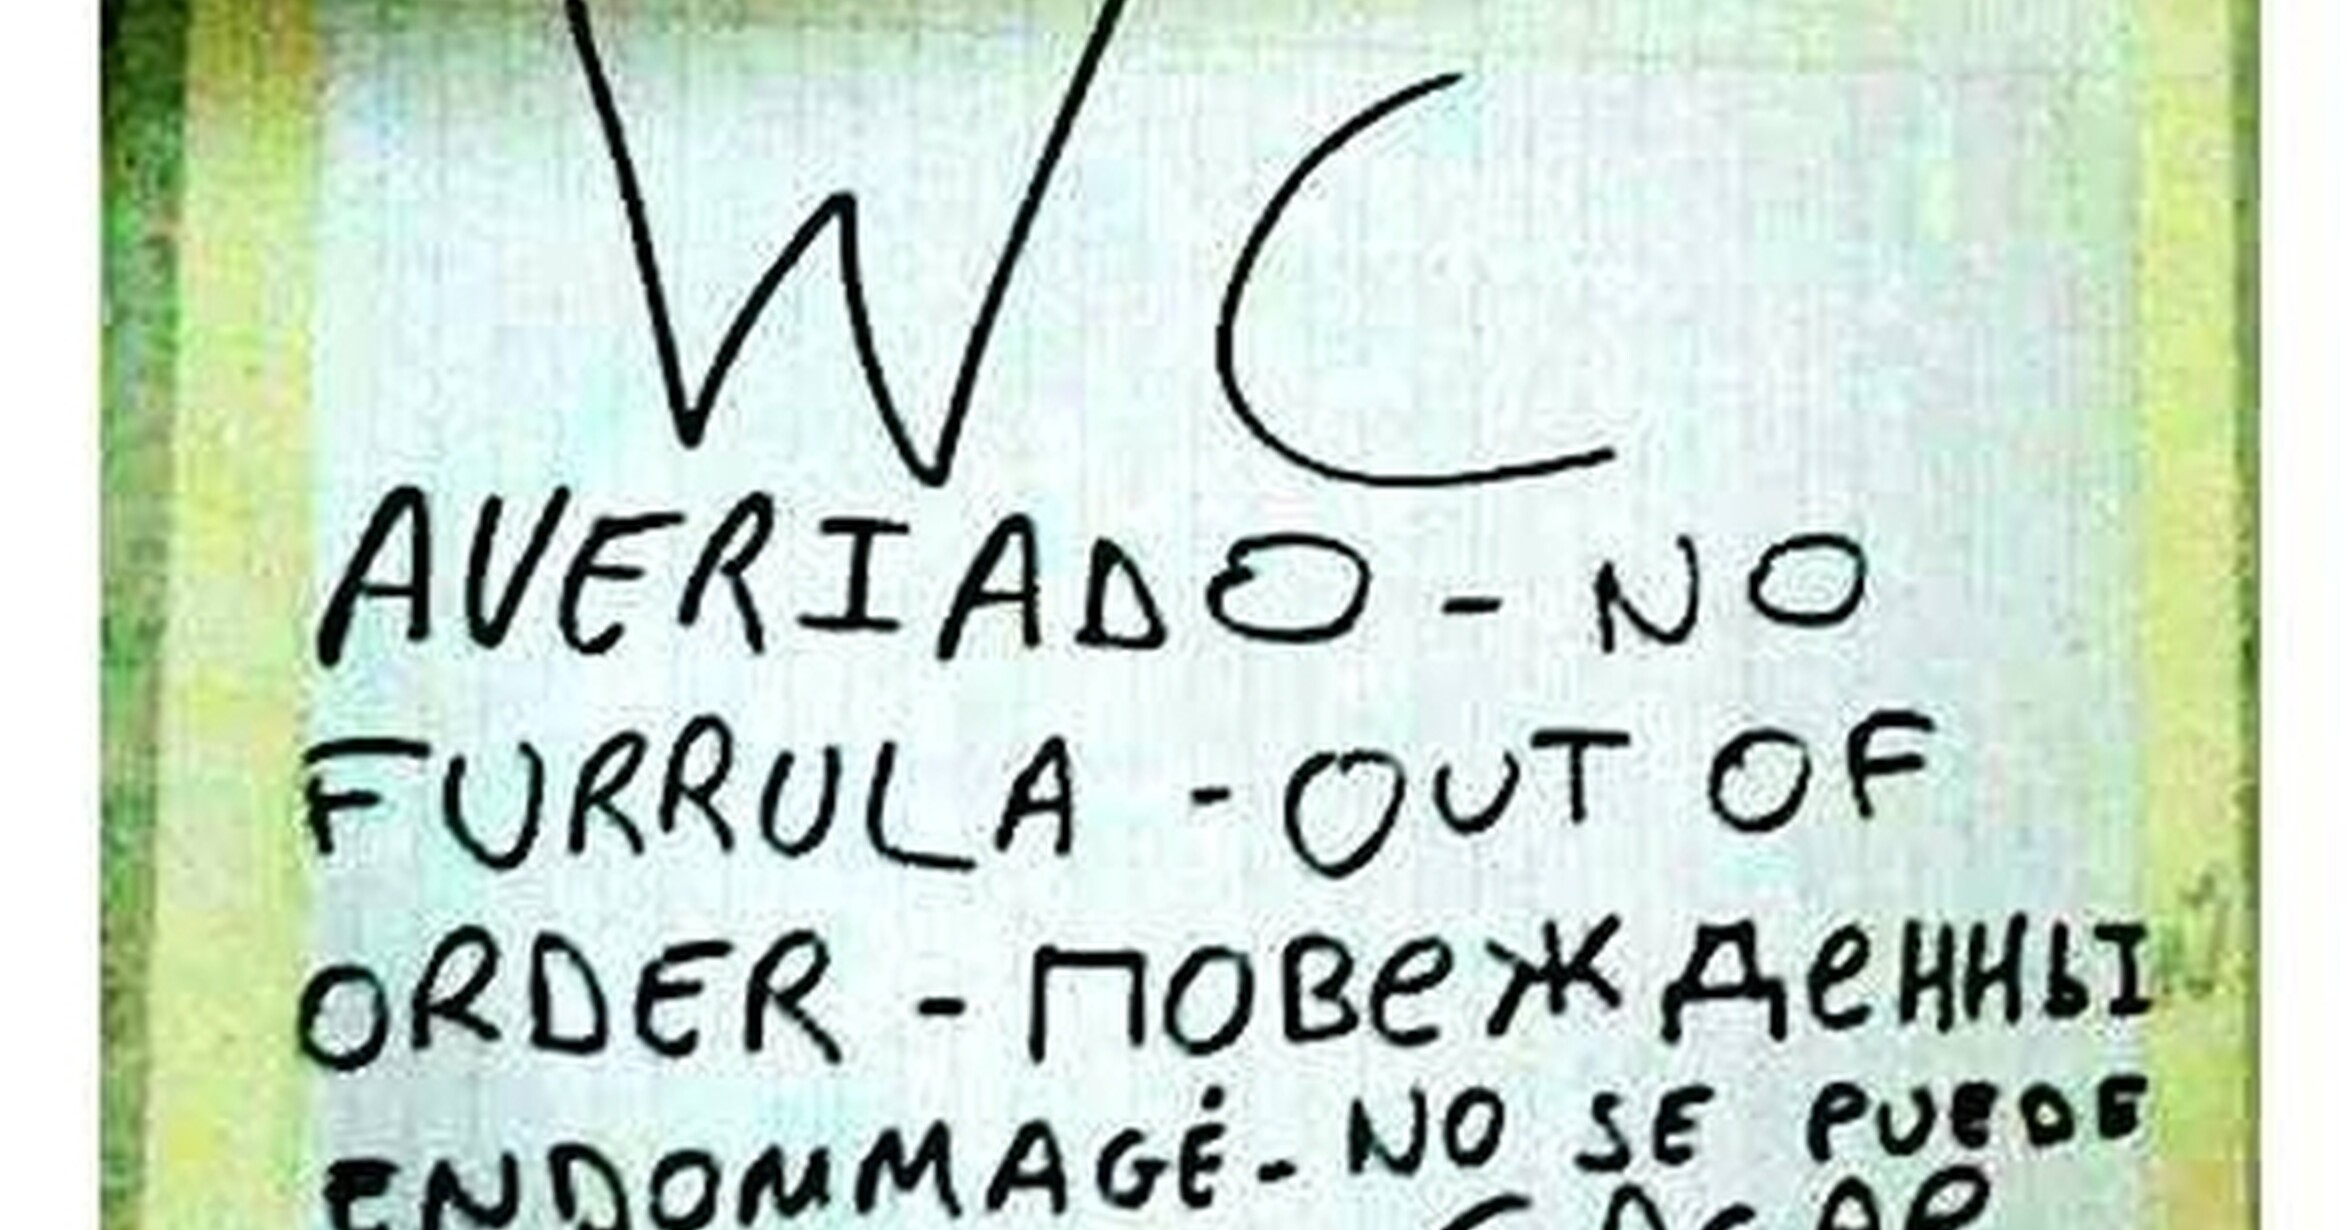 WC
AVERIADO - NO
FURRULA - OUT OF
ORDER - ПОВеЖДеННЫ
ENDOMMAGÉ - NO SE PUEDE
CAGAR